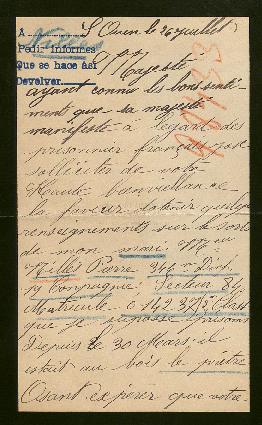 A
Pedir informes
Que se hace así
Devolver
S Ouen le 26 juillet
Majesté
ayant connu les bons senti-
ment que sa majesté
manifeste à l'egard des
prisonnier français j'ose
solliciter de votre
Haute bienveillance
la faveur d'obtenir quelques
renseignements sur le sort
de mon mari Mr
Pierre 346 me
Compagnie Secteur
Matricule
que je suppose prisonnier
Depuis le 30 Mars il
etait au bois le pretre
Osant espérer que votre